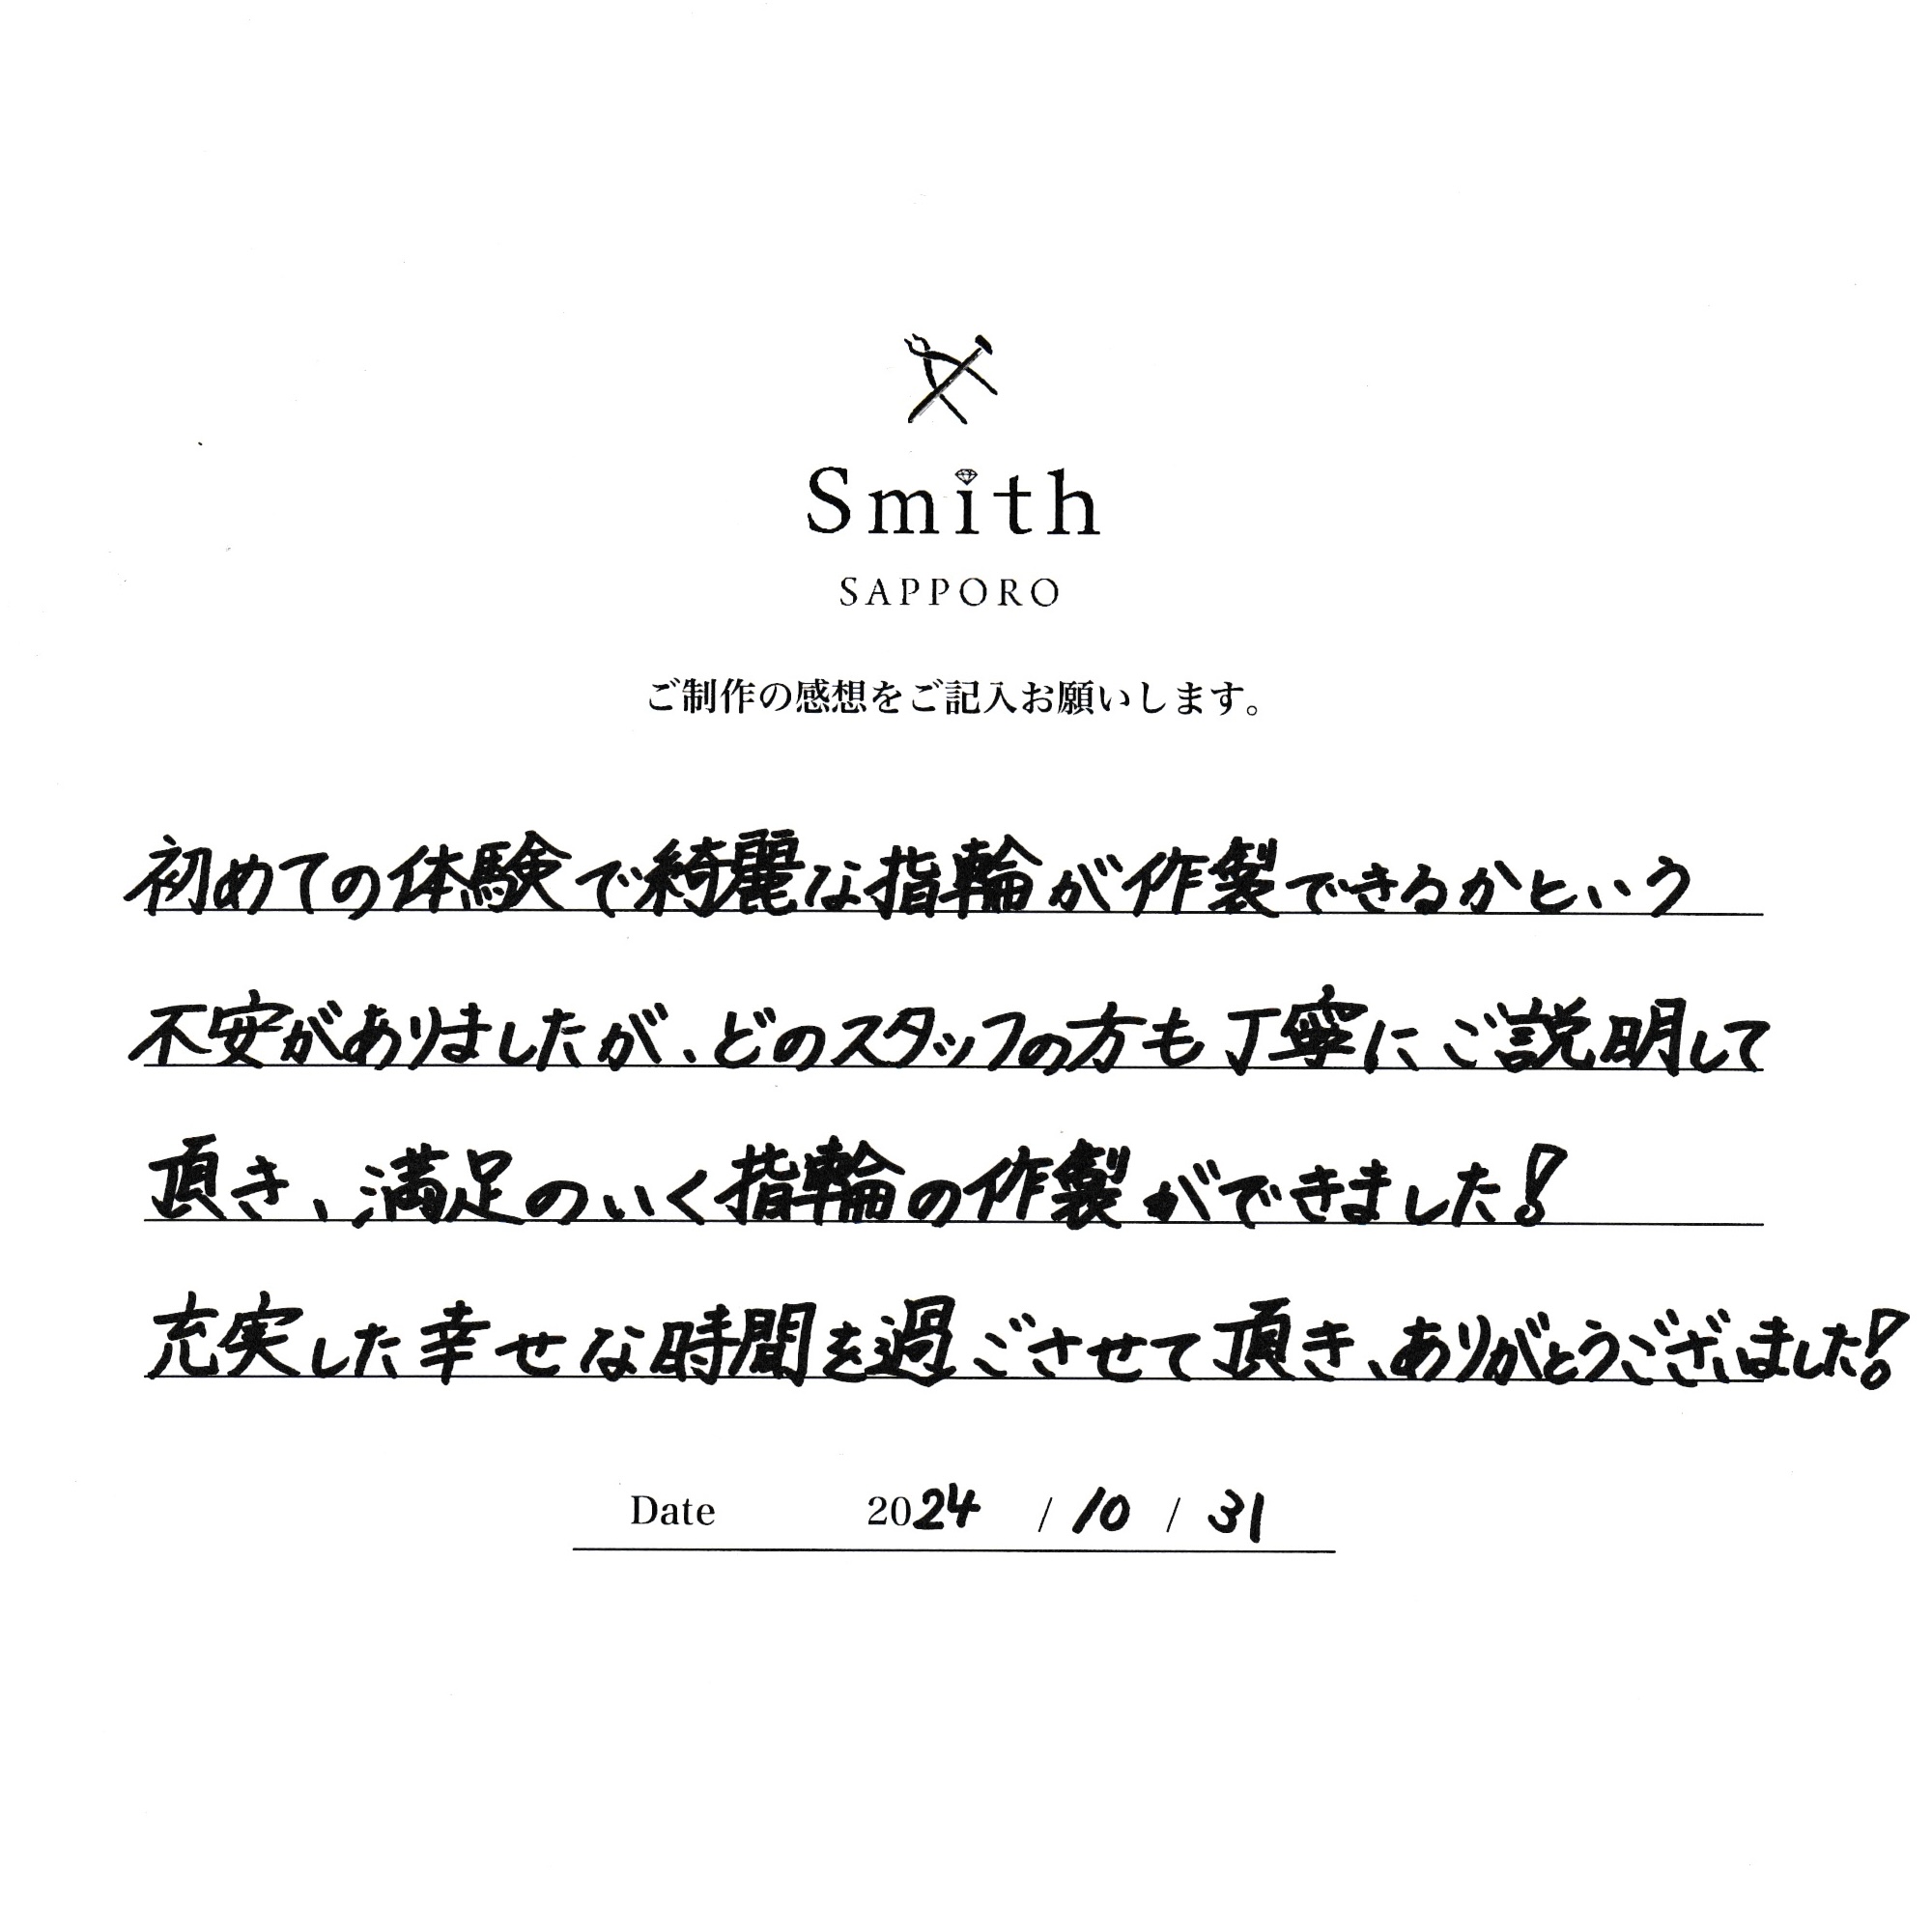 Smith
SAPPORO
ご制作の感想をご記入お願いします。
初めての体験で綺麗な指輪が作製できるかという
不安がありましたが、どのスタッフの方も丁寧にご説明して
頂き、満足のいく指輪の作製ができました!
充実した幸せな時間を過ごさせて頂き、ありがとうございました!
Date 2024 / 10 / 31